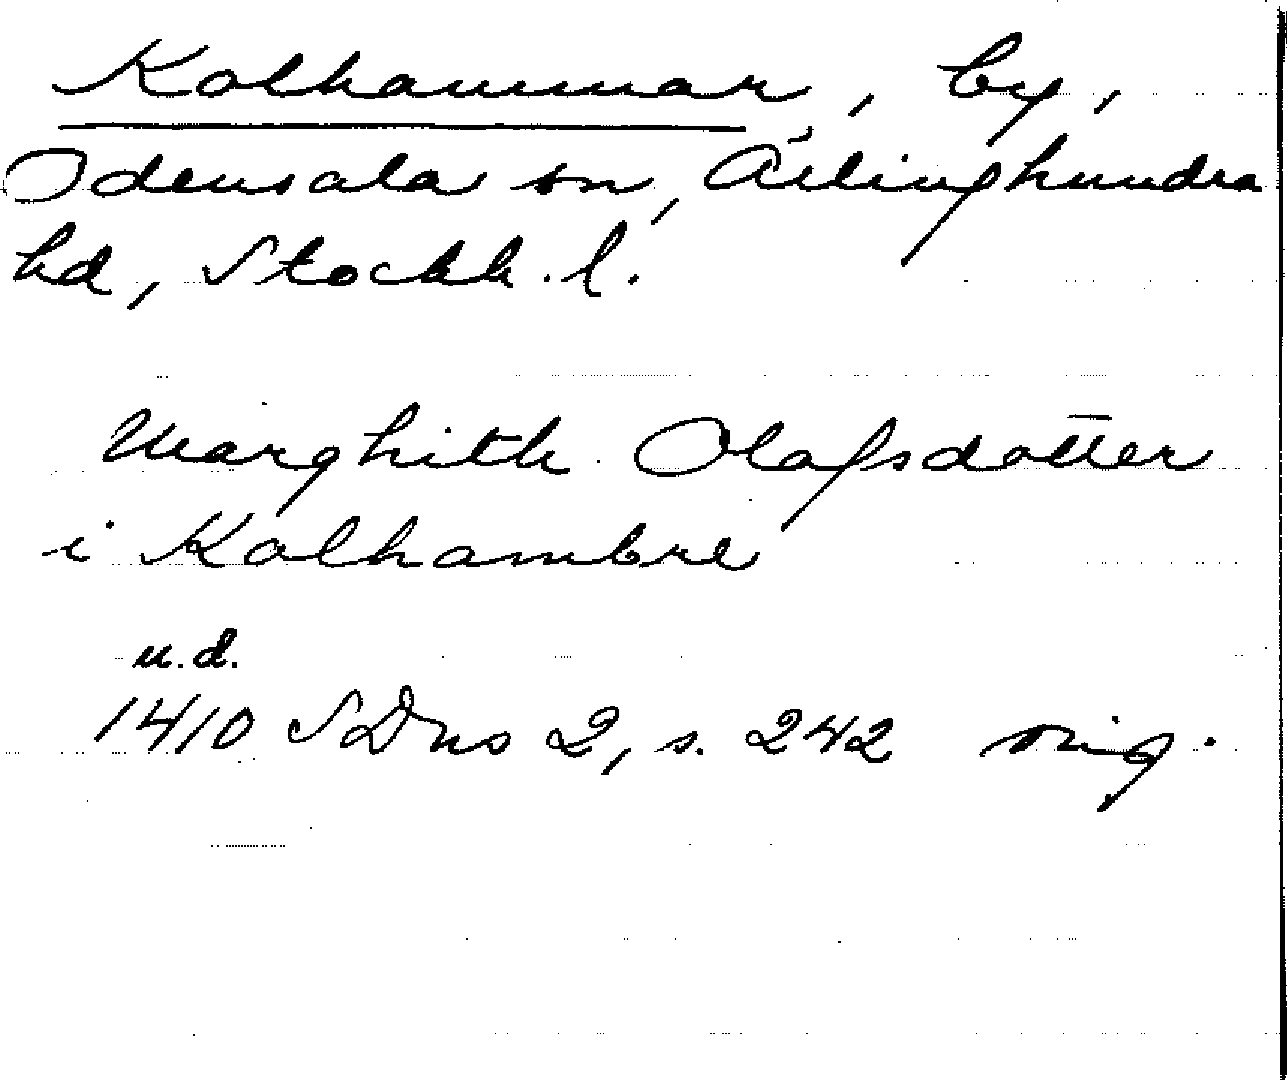 Kolhammar, by,
Odensala sn, Ärlinghundra
hd, Stockh. l.
Marghith Olafsdott̄er
i Kolhambre
u.d.
1410 SDns 2, s. 242 orig.